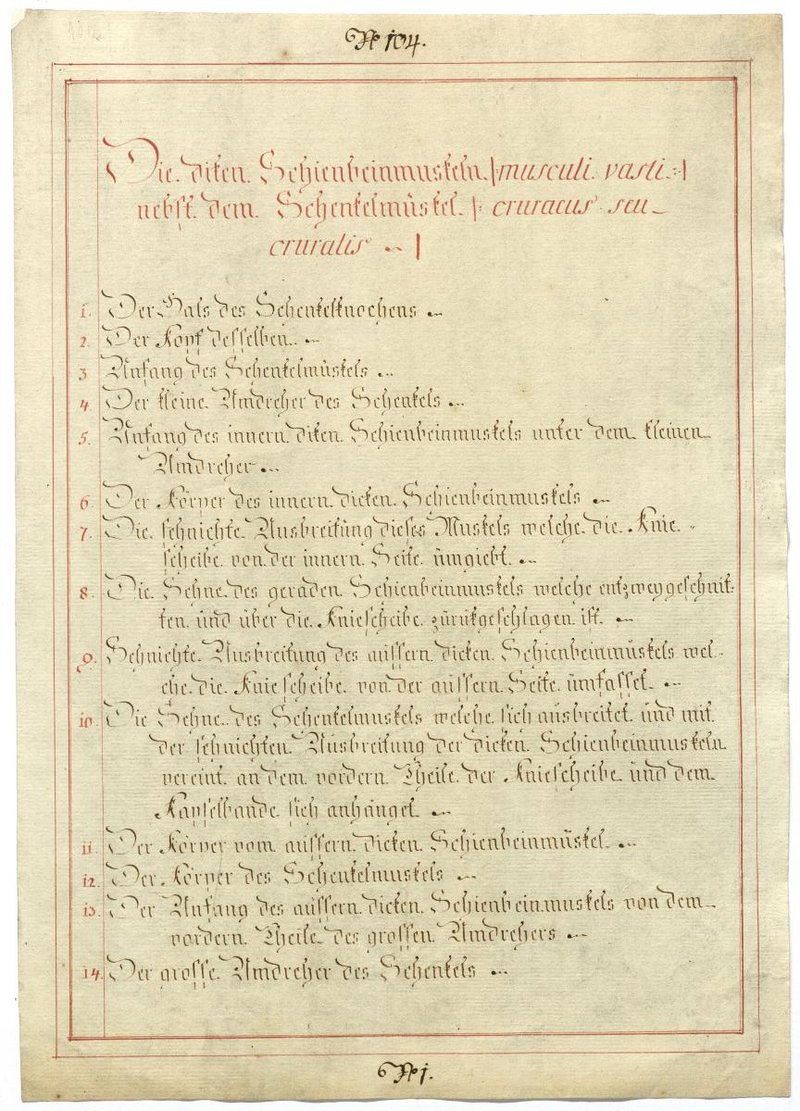 No 104.
Die diken Schienbeinmuskeln |: musculi vasti :|
nebst dem Schenkelmüskel |: cruraeus seu
cruralis :|
1. Der Hals des Schenkelknochens
2. Der Kopf desselben
3 Anfang des Schenkelmüskels
4. Der kleine Umdreher des Schenkels
5. Anfang des innern diken Schienbeinmuskels unter dem kleinen
Umdreher
6. Der Körper des innern dicken Schienbeinmuskels
7. Die sehnichte Ausbreitüng dieses Muskels welche die Knie-
scheibe von der innern Seite ümgiebt
8. Die Sehne des geraden Schienbeinmuskels welche entzwey geschnit-
ten ünd über die Kniescheibe zürükgeschlagen ist
9. Sehnichte Ausbreitüng des aüssern dicken Schienbeinmüskels wel-
che die Kniescheibe von der aüssern Seite ümfasset
10. Die Sehne des Schenkelmuskels welche sich aüsbreitet ünd mit
der sehnichten Aüsbreitüng der dicken Schienbeinmuskeln
vereint an dem vordern Theile der Kniescheibe ünd dem
Kapselbande sich anhänget
11. Der Körper vom aüssern dicken Schienbeinmüskel
12. Der Körper des Schenkelmuskels
13. Der Anfang des aüssern dicken Schienbeinmuskels von dem
vordern Theile des grossen Umdrehers
14. Der grosse Umdreher des Schenkels
No 1.